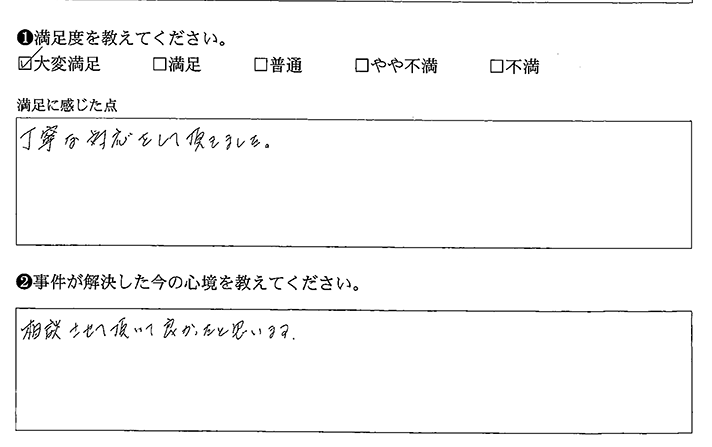 ❶満足度を教えてください。
☑大変満足 □満足 □普通 □やや不満 □不満
満足に感じた点
丁寧な対応をして頂きました。
❷事件が解決した今の心境を教えてください。
相談させて頂いて良かったと思います.